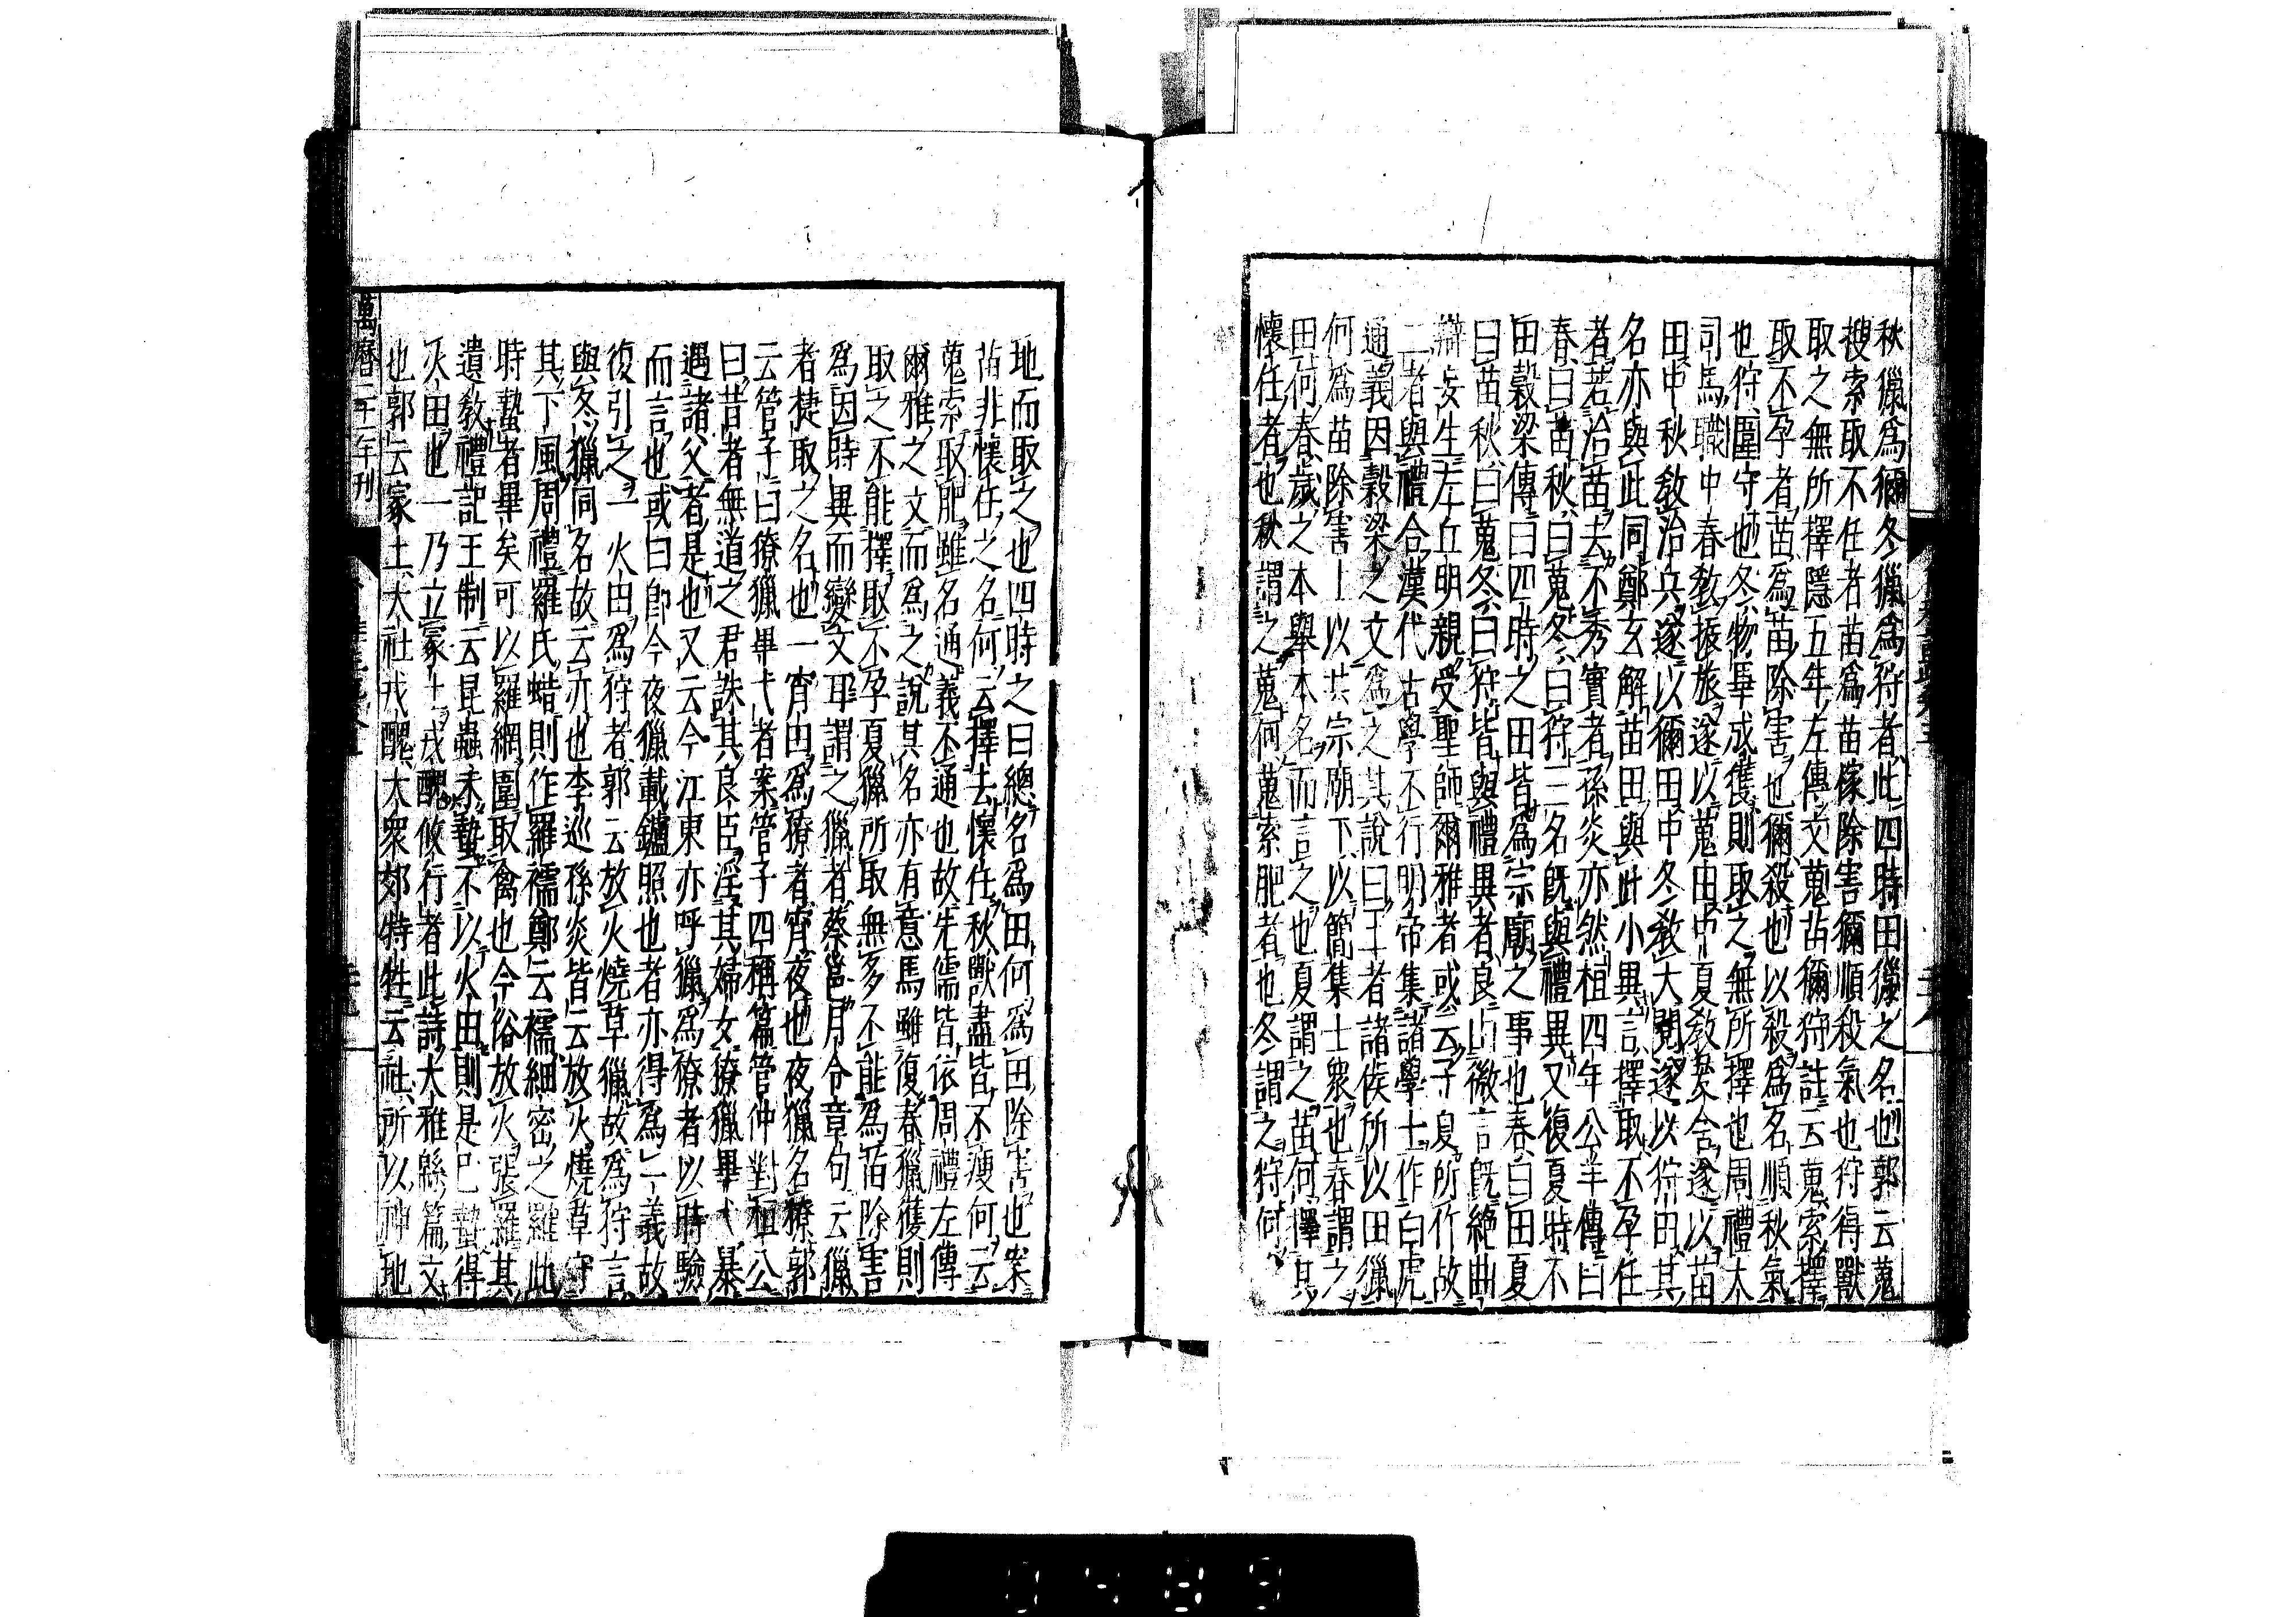 秋獵爲獮冬獵爲狩者此四時田獵之名也郭云蒐
搜索取不任者苗爲苗稼除害獮順殺氣也狩得獸
取之無所擇隱五年左傳文蒐苗獮狩註云蒐索擇
取不孕者苗爲苗除害也獮殺也以殺爲名順秋氣
也狩圍守也冬物畢成獲則取之無所擇也周禮大
司馬職中春敎振旅遂以蒐田中夏敎茇舍遂以苗
田中秋敎治兵遂以獮田中冬敎大閱遂以狩田其
名亦與此同鄭玄解苗田與此小異言擇取不孕任
者若治苗去不秀實者孫炎亦然桓四年公羊傳曰
春曰苗秋曰蒐冬曰狩三名旣與禮異又復夏時不
田穀梁傳曰四時之田皆爲宗廟之事也春曰田夏
曰苗秋曰蒐冬曰狩皆與禮異者良由微言旣絶曲
辯妄生左丘明親受聖師爾雅者或云子夏所作故
二者與禮合漢代古學不行明帝集諸學士作白虎
通義因穀梁之文爲之其說曰王者諸侯所以田獵
何爲苗除害上以共宗廟下以簡集士衆也春謂之
田何春歲之本舉本名而言之也夏謂之苗何擇其
懷任者也秋謂之蒐何蒐索肥者也冬謂之狩何守
地而取之也四時之田總名爲田何爲田除害也案
苗非懷任之名何云擇去懷任秋獸盡皆不瘦何云
蒐索取肥雖名通義不通也故先儒皆依周禮左傳
爾雅之文而爲之說其名亦有意焉雖復春獵獲則
取之不能擇取不孕夏獵所取無多不能爲苗除害
爲因時異而變文耳謂之獵者蔡邕月令章句云獵
者捷取之名也一宵田爲獠者宵夜也夜獵名獠郭
云管子曰獠獵畢弋者案管子四稱篇管仲對桓公
曰昔者無道之君誅其良臣淫其婦女獠獵畢弋暴
遇諸父者是也又云今江東亦呼獵爲獠者以時驗
而言也或曰卽今夜獵載鑪照也者亦得爲一義故
復引之一火田爲狩者郭云放火燒草獵故爲狩言
與冬獵同名故云亦也李巡孫炎皆云放火燒草守
其下風周禮羅氏蜡則作羅襦鄭云襦細密之羅此
時蟄者畢矣可以羅網圍取禽也今俗放火張羅其
遺敎禮記王制云昆蟲未蟄不以火田則是已蟄得
火田也一乃立冢土戎醜攸行者此詩大雅緜篇文
也郭云冢土大社戎醜大衆郊特牲云社所以神地
萬曆二十一年刊